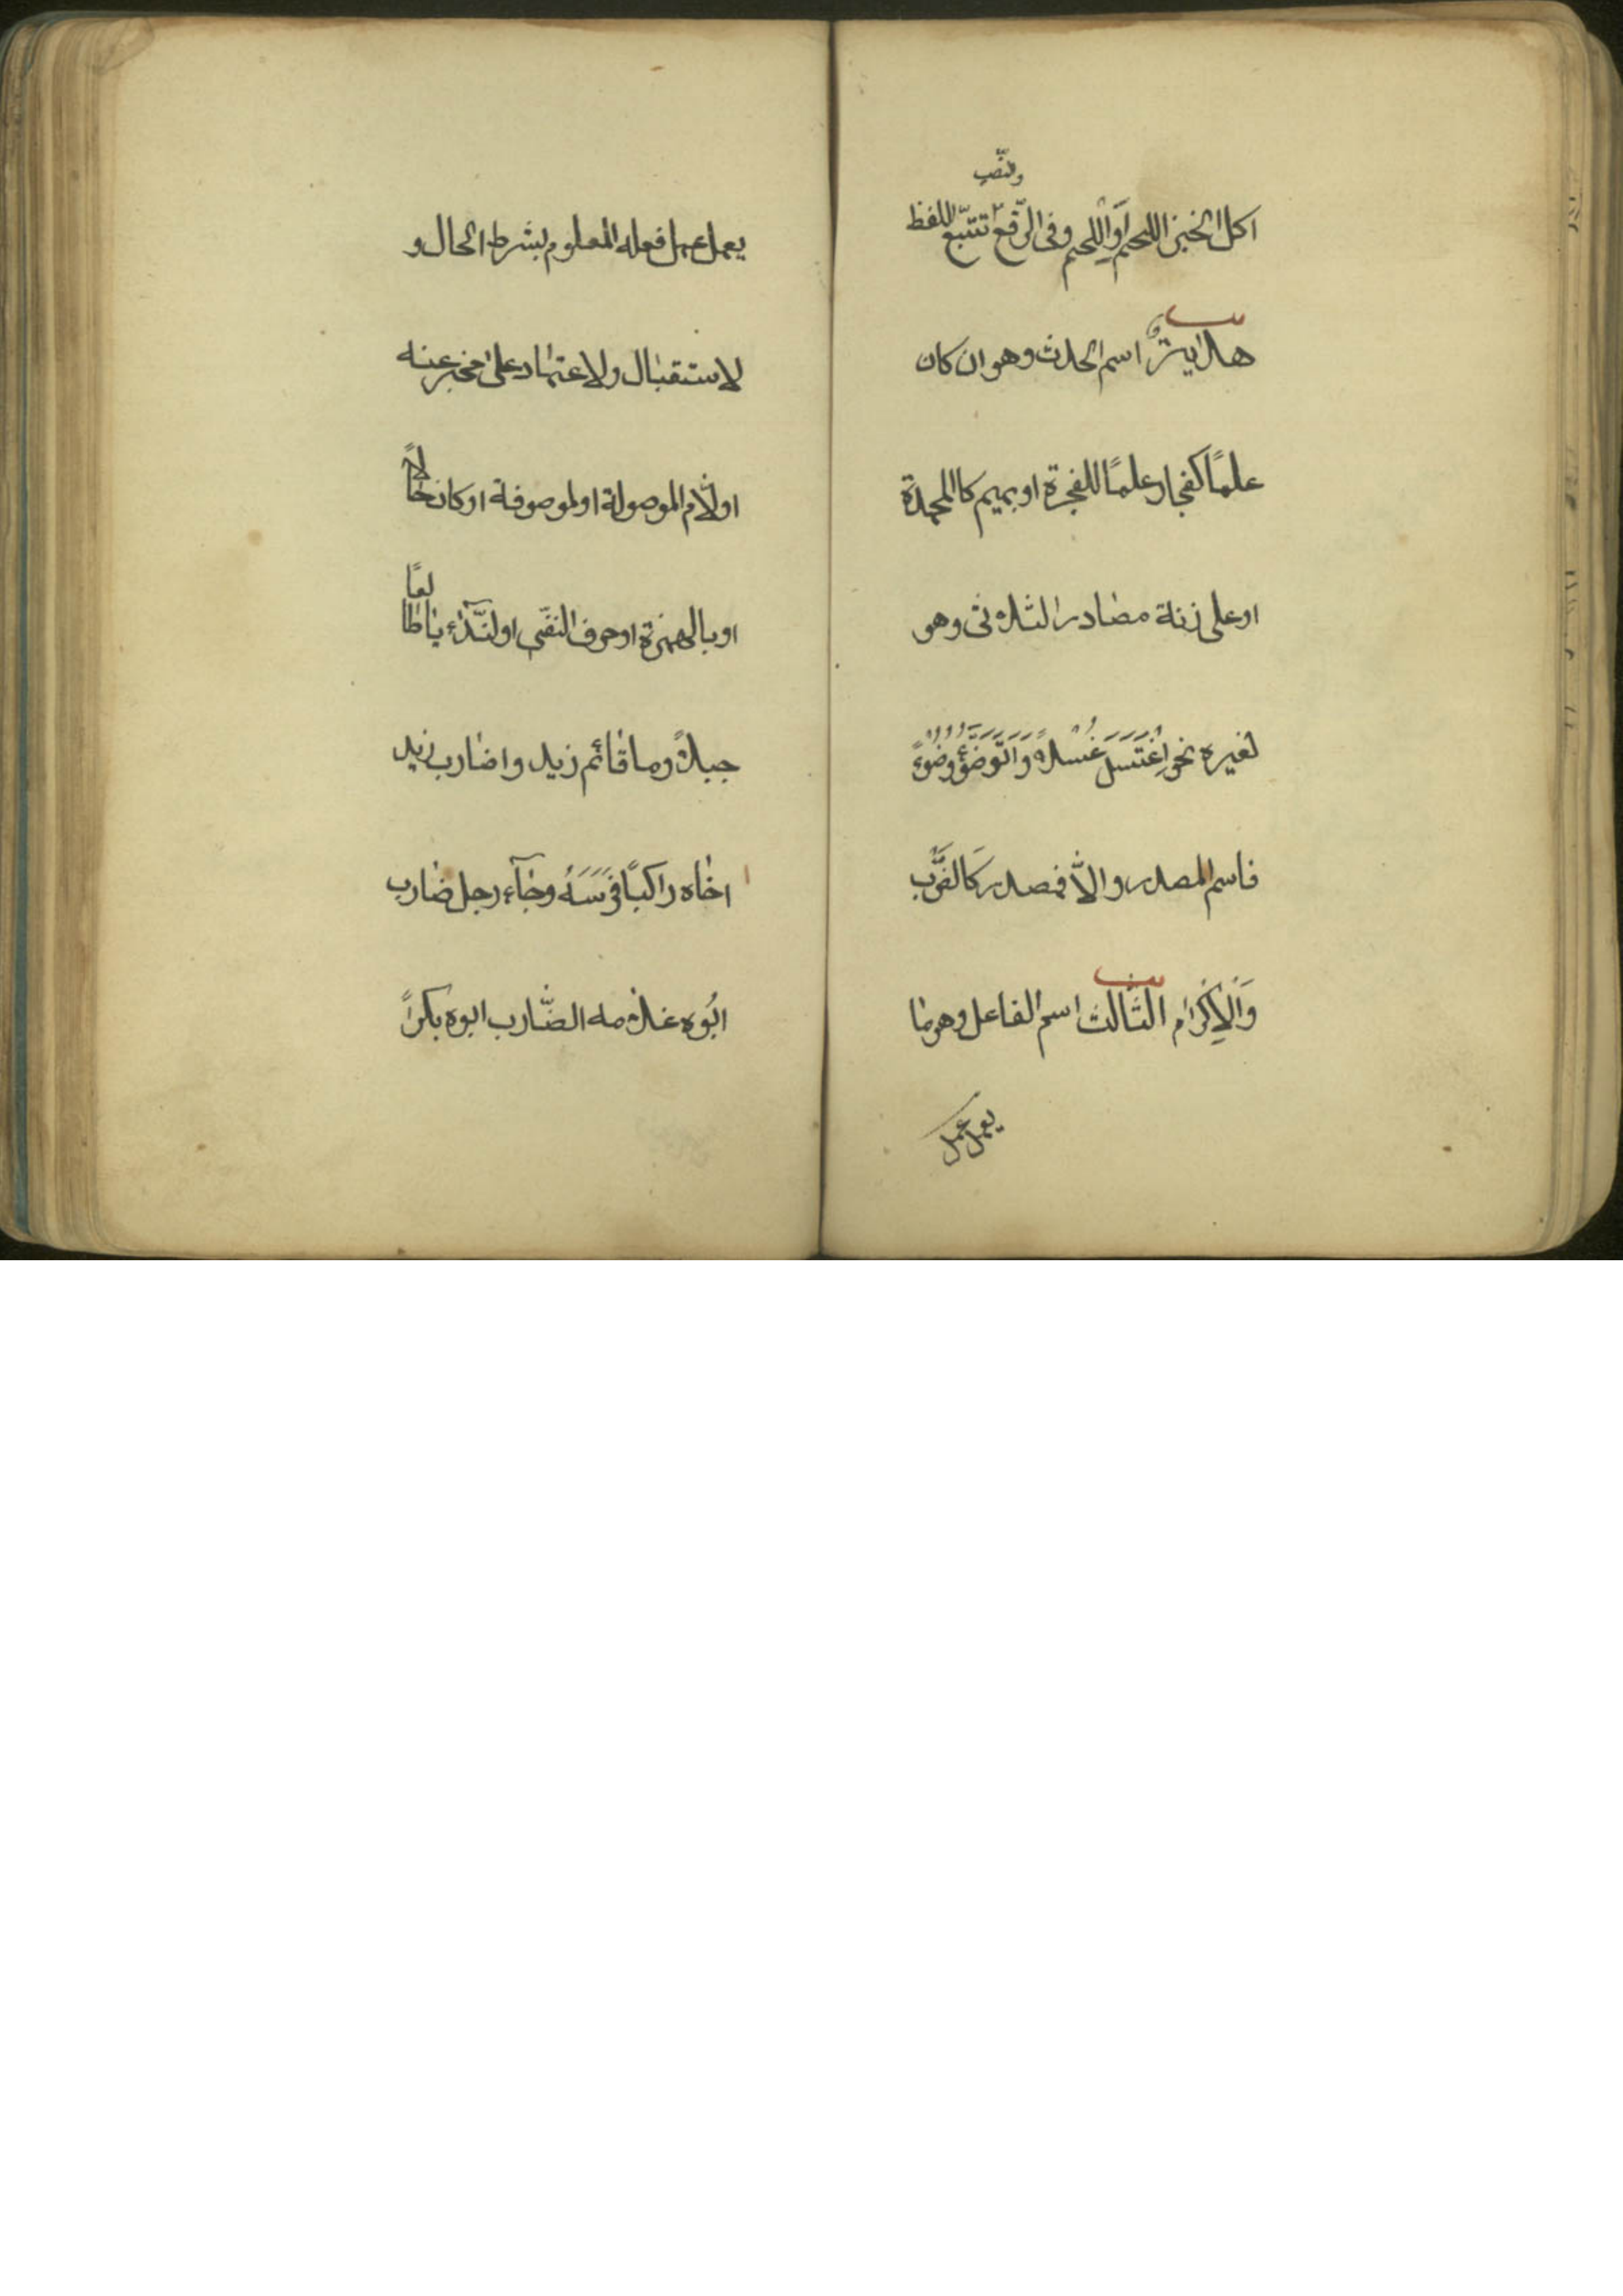 والنّصب
اكل الخبز اللحم او اللحم وفى الرّفع تتبّع اللفظ
اسم الحدث وهو ان كان
علمًا كفجار علمًا للفجرة او بميم كالمحمدة
او على زنة مصادر الثلاثى وهو
لغيره نحو اِغْتَسَلَ غُسْلاً وَتَوَضَّؤَ وضوءً
فاسم المصدر والاّ فمصدر كَالضَّرب
وَالْاِكْرَام الثّالث اسم الفاعل وهو ما
يعمل عمل
يعمل عمل فعله المعلوم بشرط الحال و
لاستقبال ولاعتماد على مخبر عنه
او لام الموصولة او لموصوفة او كان حالاً
او بالهمزة او حرف النفى او لنّدٓاء يا طالعًا
جبلاً وما قائم زيد واضارب زيد
اخاه راكبًا فَرَسَهُ وجآء رجل ضارب
ابُوه غلامه الضّارب ابوه بكراً